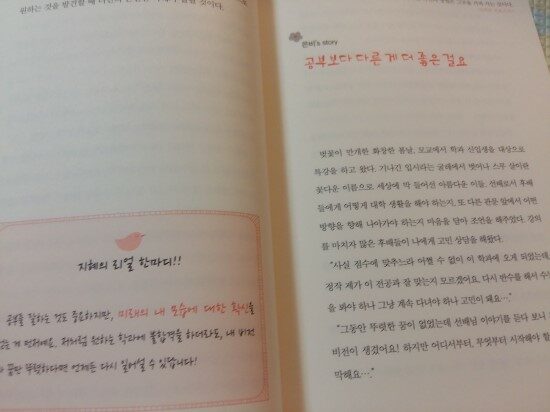 원하는 것을 발견할 때
것이다.
지혜의 리얼 한마디!!
공부를 잘하는 것도 중요하지만, 미래의 내 모습에 대한 확신을
는 게 먼저예요. 저처럼 원하는 학과에 불합격을 하더라도, 내 비전
만 뚜렷하다면 언제든 다시 일어설 수 있답니다!
은비's story
공부보다 다른 게 더 좋은 걸요
벚꽃이 만개한 화창한 봄날, 모교에서 학과 신입생을 대상으로
특강을 하고 왔다. 기나긴 입시라는 굴레에서 벗어나 스무 살이란
꽃다운 이름으로 세상에 막 들어선 아름다운 이들. 선배로서 후배
들에게 어떻게 대학 생활을 해야 하는지, 또 다른 관문 앞에서 어떤
방향을 향해 나아가야 하는지 마음을 담아 조언을 해주었다. 강의
를 마치자 많은 후배들이 나에게 고민 상담을 해왔다.
"사실 점수에 맞추느라 어쩔 수 없이 이 학과에 오게 되었는데,
정작 제가 이 전공과 잘 맞는지 모르겠어요. 다시 반수를 해서 수능
을 봐야 하나 그냥 계속 다녀야 하나 고민이 돼요…"
"그동안 뚜렷한 꿈이 없었는데 선배님 이야기를 듣다 보니
비전이 생겼어요! 하지만 어디서부터, 무엇부터 시작해야 할
막해요…"